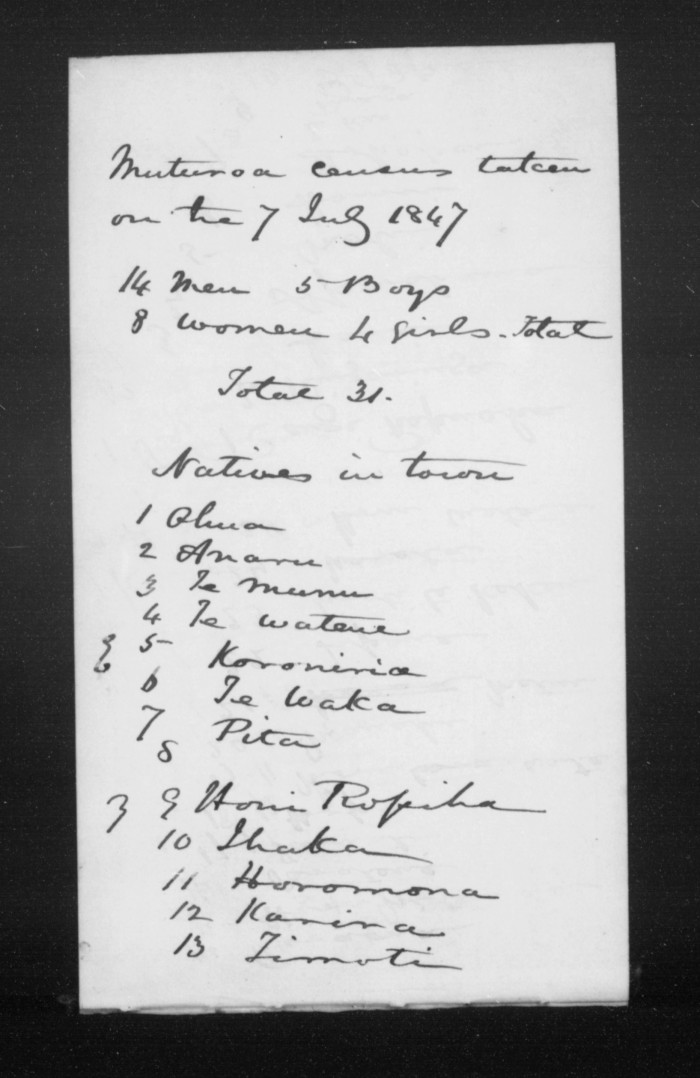 Muturoa census taken
on the 7 July 1847
14 Men 5 Boys
8 women 4 girls. Total
Total 31.
Natives in town
1 Ohua
2 Anaru
3 Te Munu
4 Te watene
5 Koroniria
6 Te Waka
7 Pita
8
3 9 Honi Ropiha
10 Ihaka
11 Horomona
12 Karira
13 Timoti